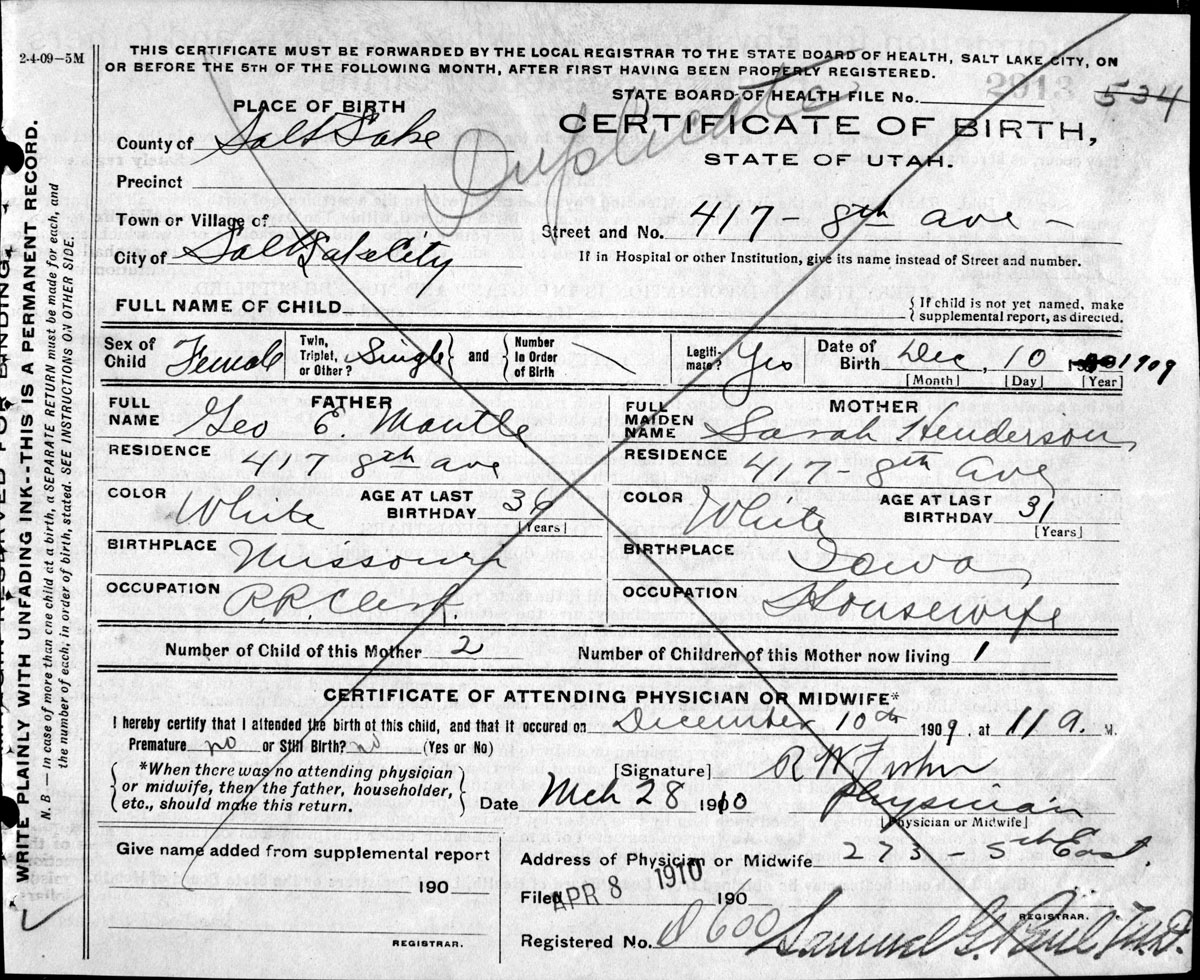 2-4-09-5M
THIS CERTIFICATE MUST BE FORWARDED BY THE LOCAL REGISTRAR TO THE STATE BOARD OF HEALTH, SALT LAKE CITY, ON
OR BEFORE THE 5TH OF THE FOLLOWING MONTH, AFTER FIRST HAVING BEEN PROPERLY REGISTERED.
STATE BOARD OF HEALTH FILE No. 2013 534
Duplicate
PLACE OF BIRTH
CERTIFICATE OF BIRTH,
STATE OF UTAH.
County of Salt Lake
Precinct
Town or Village of
City of Salt Lake City
Street and No. 417 - 8th ave -
If in Hospital or other Institution, give its name instead of Street and number.
FULL NAME OF CHILD
{ If child is not yet named, make
supplemental report, as directed.
Sex of Child Female
Twin, Triplet, or Other? Single } and { Number in Order of Birth
Legitimate? Yes
Date of Birth Dec, 10 1909
[Month] [Day] [Year]
FATHER
FULL NAME Geo E. Mantle
RESIDENCE 417 8th ave
COLOR White AGE AT LAST BIRTHDAY 36
[Years]
BIRTHPLACE Missouri
OCCUPATION R.R. Clerk.
MOTHER
FULL MAIDEN NAME Sarah Henderson
RESIDENCE 417 - 8th Ave
COLOR White AGE AT LAST BIRTHDAY 31
[Years]
BIRTHPLACE Iowa
OCCUPATION Housewife
Number of Child of this Mother 2 Number of Children of this Mother now living 1
CERTIFICATE OF ATTENDING PHYSICIAN OR MIDWIFE*
I hereby certify that I attended the birth of this child, and that it occured on December 10th 1909, at 11 a. M.
Premature no or Still Birth? no (Yes or No)
{ *When there was no attending physician
or midwife, then the father, householder,
etc., should make this return. }
[Signature] R W Fisher
Date Mch 28 1910 Physician
[Physician or Midwife]
Give name added from supplemental report
190
REGISTRAR.
Address of Physician or Midwife 273 5th East.
Filed APR 8 1910 190
REGISTRAR.
Registered No. D 600 Samuel G. Paul M.D.
WRITE PLAINLY WITH UNFADING INK--THIS IS A PERMANENT RECORD.
N. B — In case of more than one child at a birth, a SEPARATE RETURN must be made for each, and
the number of each, in order of birth, stated. SEE INSTRUCTIONS ON OTHER SIDE.